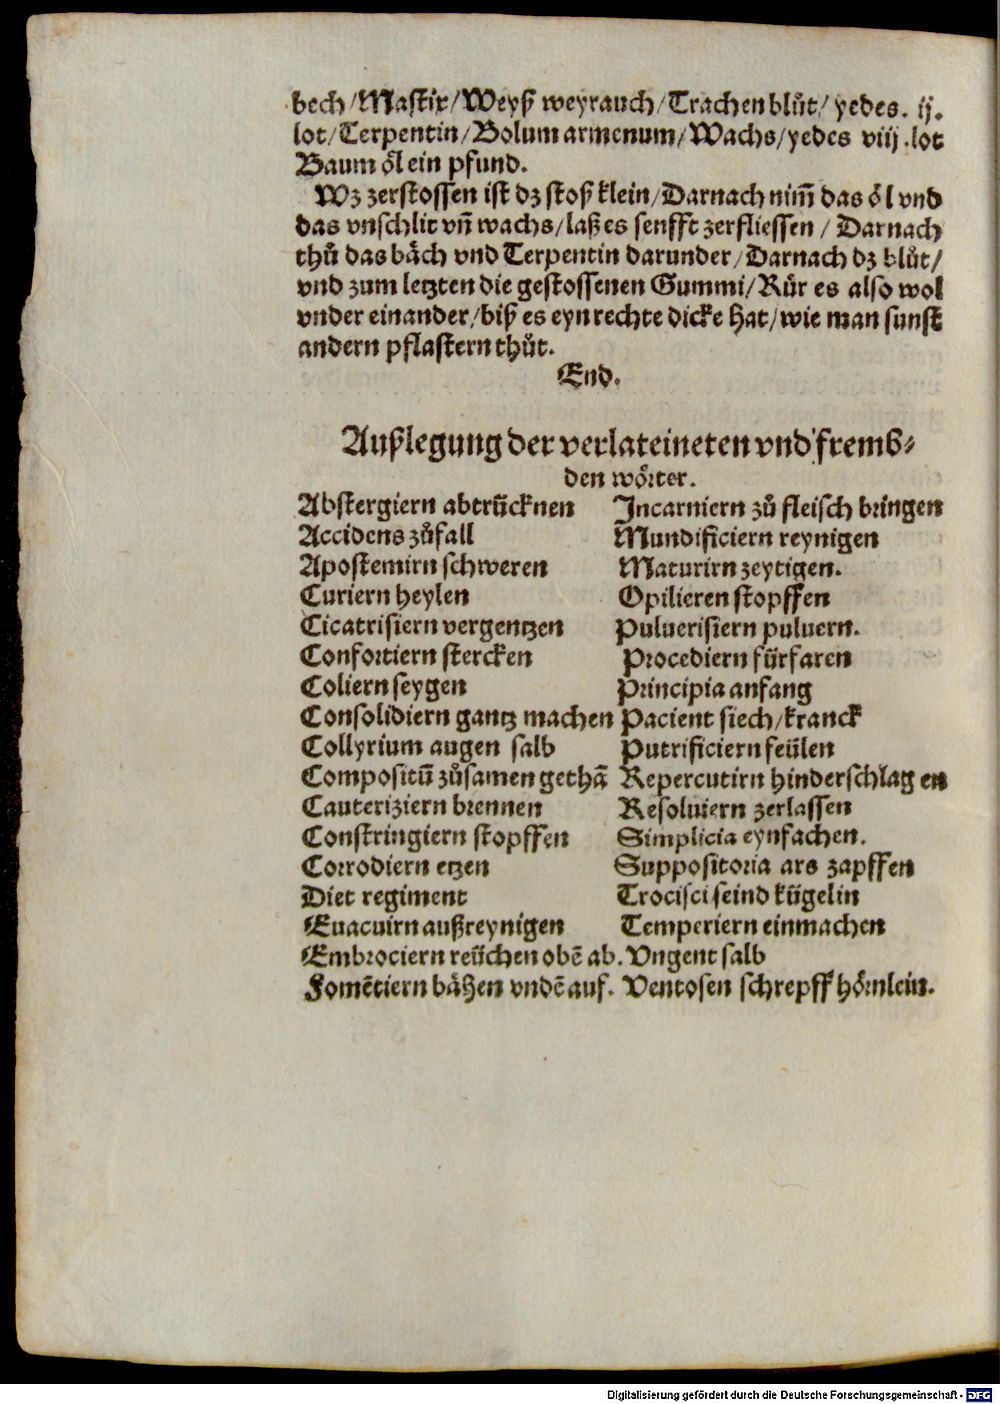 bech/Mastix/Weyß weyrauch/Trachenblůt/ yedes. ij.
lot/Terpentin/Bolum armenum/Wachs/yedes viij.lot
Baum ôl ein pfund.
Wz zerstossen ist dz stoß klein/Darnach nim̃ das ôl vnd
das vnschlit vñ wachs/laß es senfft zerfliessen/Darnach
thů das bâch vnd Terpentin darunder/Darnach dz blůt/
vnd zum letzten die gestossenen Gummi/Rûr es also wol
vnder einander/biß es eyn rechte dicke hat/wie man sunst
andern pflastern thůt.
End.
Außlegung der verlateineten vnd fremb⸗
den wôrter.
Abstergiern abtrücknen
Accidens zůfall
Apostemirn schweren
Curiern heylen
Cicatrisiern vergentzen
Confortiern stercken
Coliern seygen
Consolidiern gantz machen
Collyrium augen salb
Compositū zůsamen gethā
Cauteriziern brennen
Constringiern stopffen
Corrodiern etzen
Diet regiment
Euacuirn außreynigen
Embrociern reüchen obē ab.
Fomētiern bâhen vndē auf.
Incarniern zů fleisch bringen
Mundificiern reynigen
Maturirn zeytigen.
Opilieren stopffen
Puluerisiern puluern.
Procediern fürfaren
Principia anfang
Pacient siech/kranck
Putrificiern feülen
Repercutirn hinderschlagen
Resoluiern zerlassen
Simplicia eynfachen.
Suppositoria ars zapffen
Trocisci seind kügelin
Temperiern einmachen
Vngent salb
Ventosen schrepff hôrnlein.
Digitalisierung gefördert durch die Deutsche Forschungsgemeinschaft - DFG